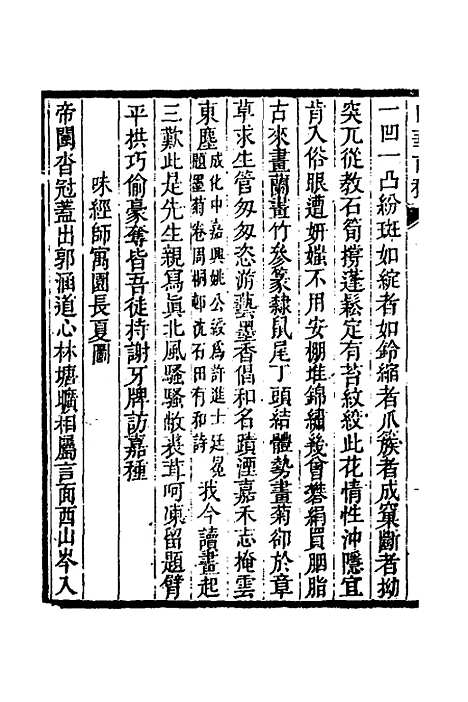 一凹一凸紛斑如綻者如鈴縮者爪簇者成窠斷者拗
突兀從教石筍撐蓬鬆定有苔紋絞此花情性沖隱宜
肯入俗眼遭妍媸不用安棚堆錦繡幾曾礬絹買胭脂
古來畫蘭畫竹參篆隸鼠尾丁頭結體勢畫菊卻於章
草求生管匆匆恣游藝墨香倡和名蹟湮嘉禾志掩雲
東塵成化中嘉興姚公綬爲許進士廷冕題墨菊卷周桐邨沈石田有和詩我今讀畫起
三歎此是先生親寫眞北風騷騷敝裘茸呵凍留題臂
平拱巧偷豪奪皆吾徒持謝牙牌訪嘉種
味經師寓園長夏圖
帝闉沓冠蓋出郭涵道心林塘曠相屬言面西山岑入